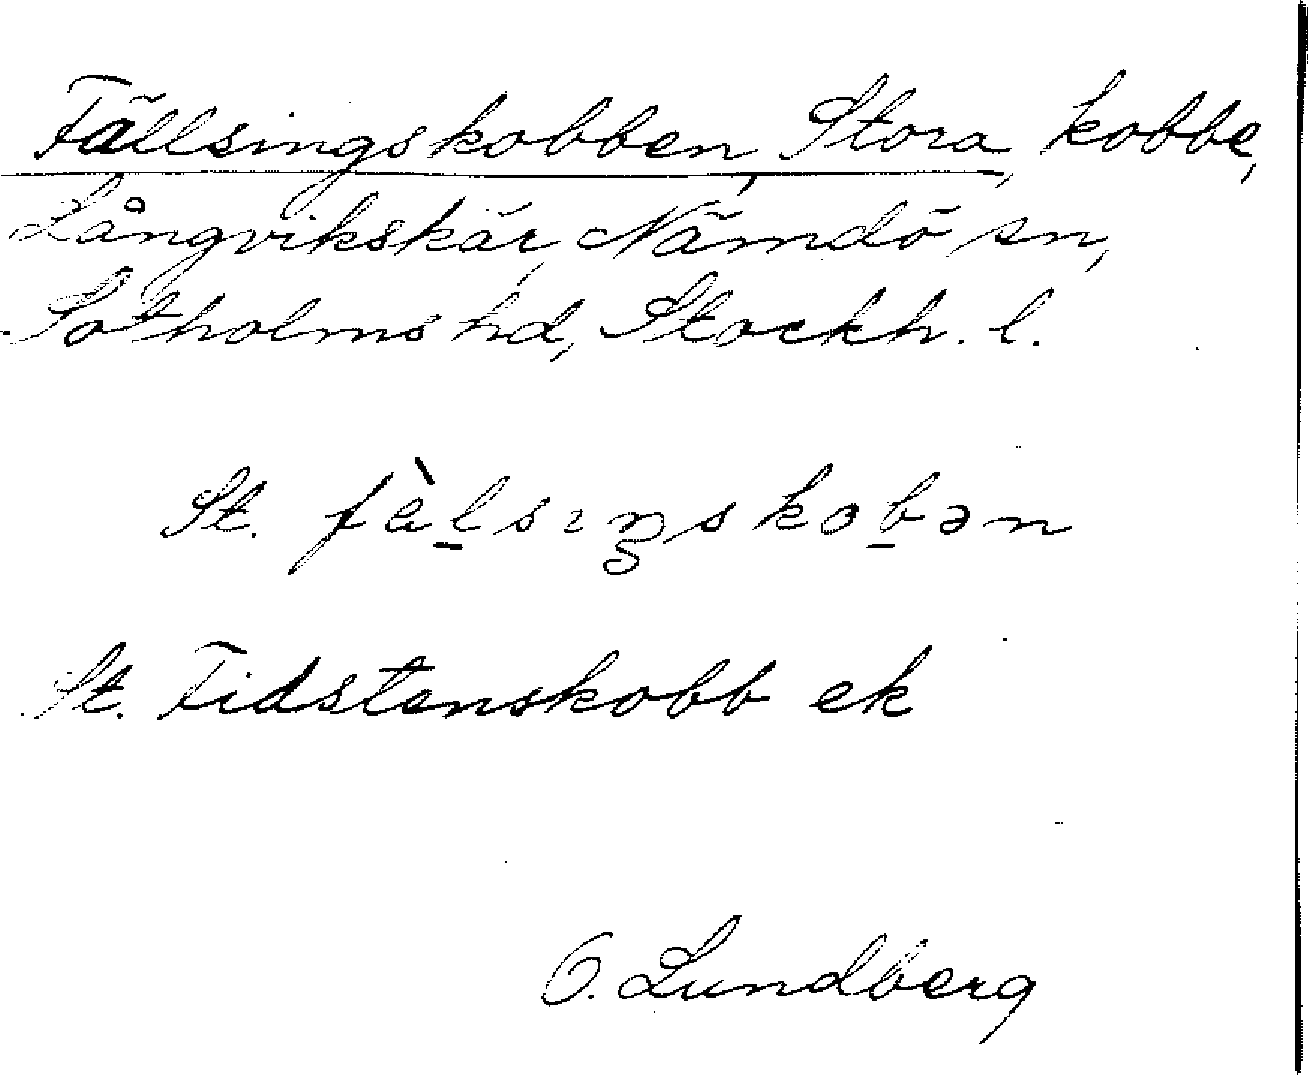 Fällsingskobben, Stora, kobbe,
Långvikskär, Nämdö sn,
Sotholms hd, Stockh. l.
St. fàlsıŋskobən
St. Fidstenskobb ek
O. Lundberg